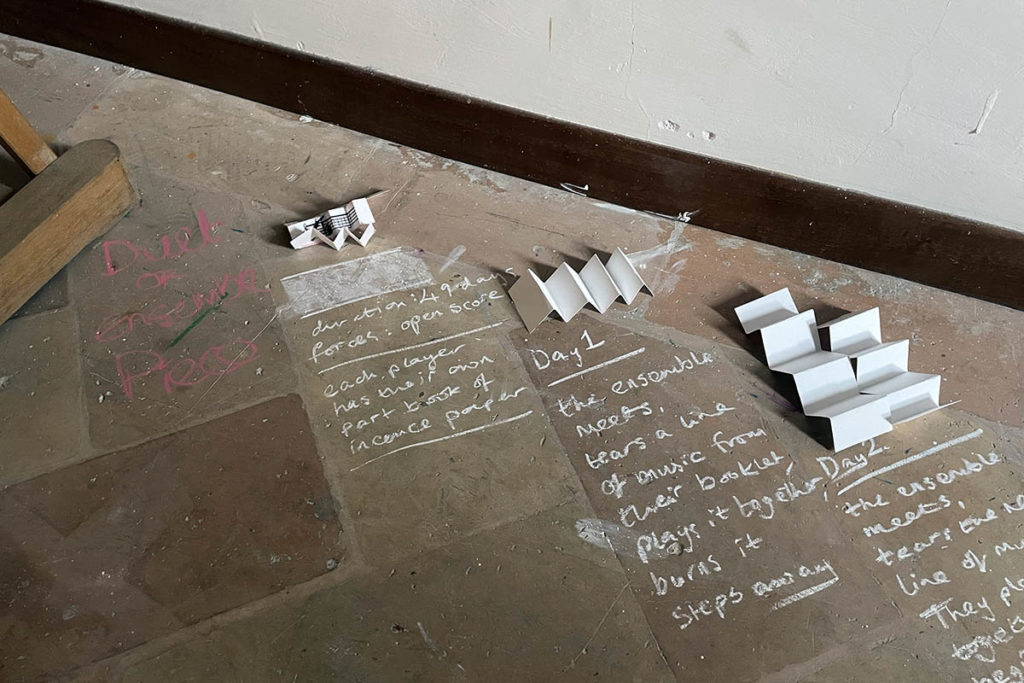 Duet
or
ensemble
duration: 49 days
forces: open score
each player
has their own
part book of
incence paper
Day 1
the ensemble
meets,
tears a line
of music from
their booklet,
plays it together,
burns it
steps away
Day 2.
the ensemble
meets,
tears the ne
line of m
They pla